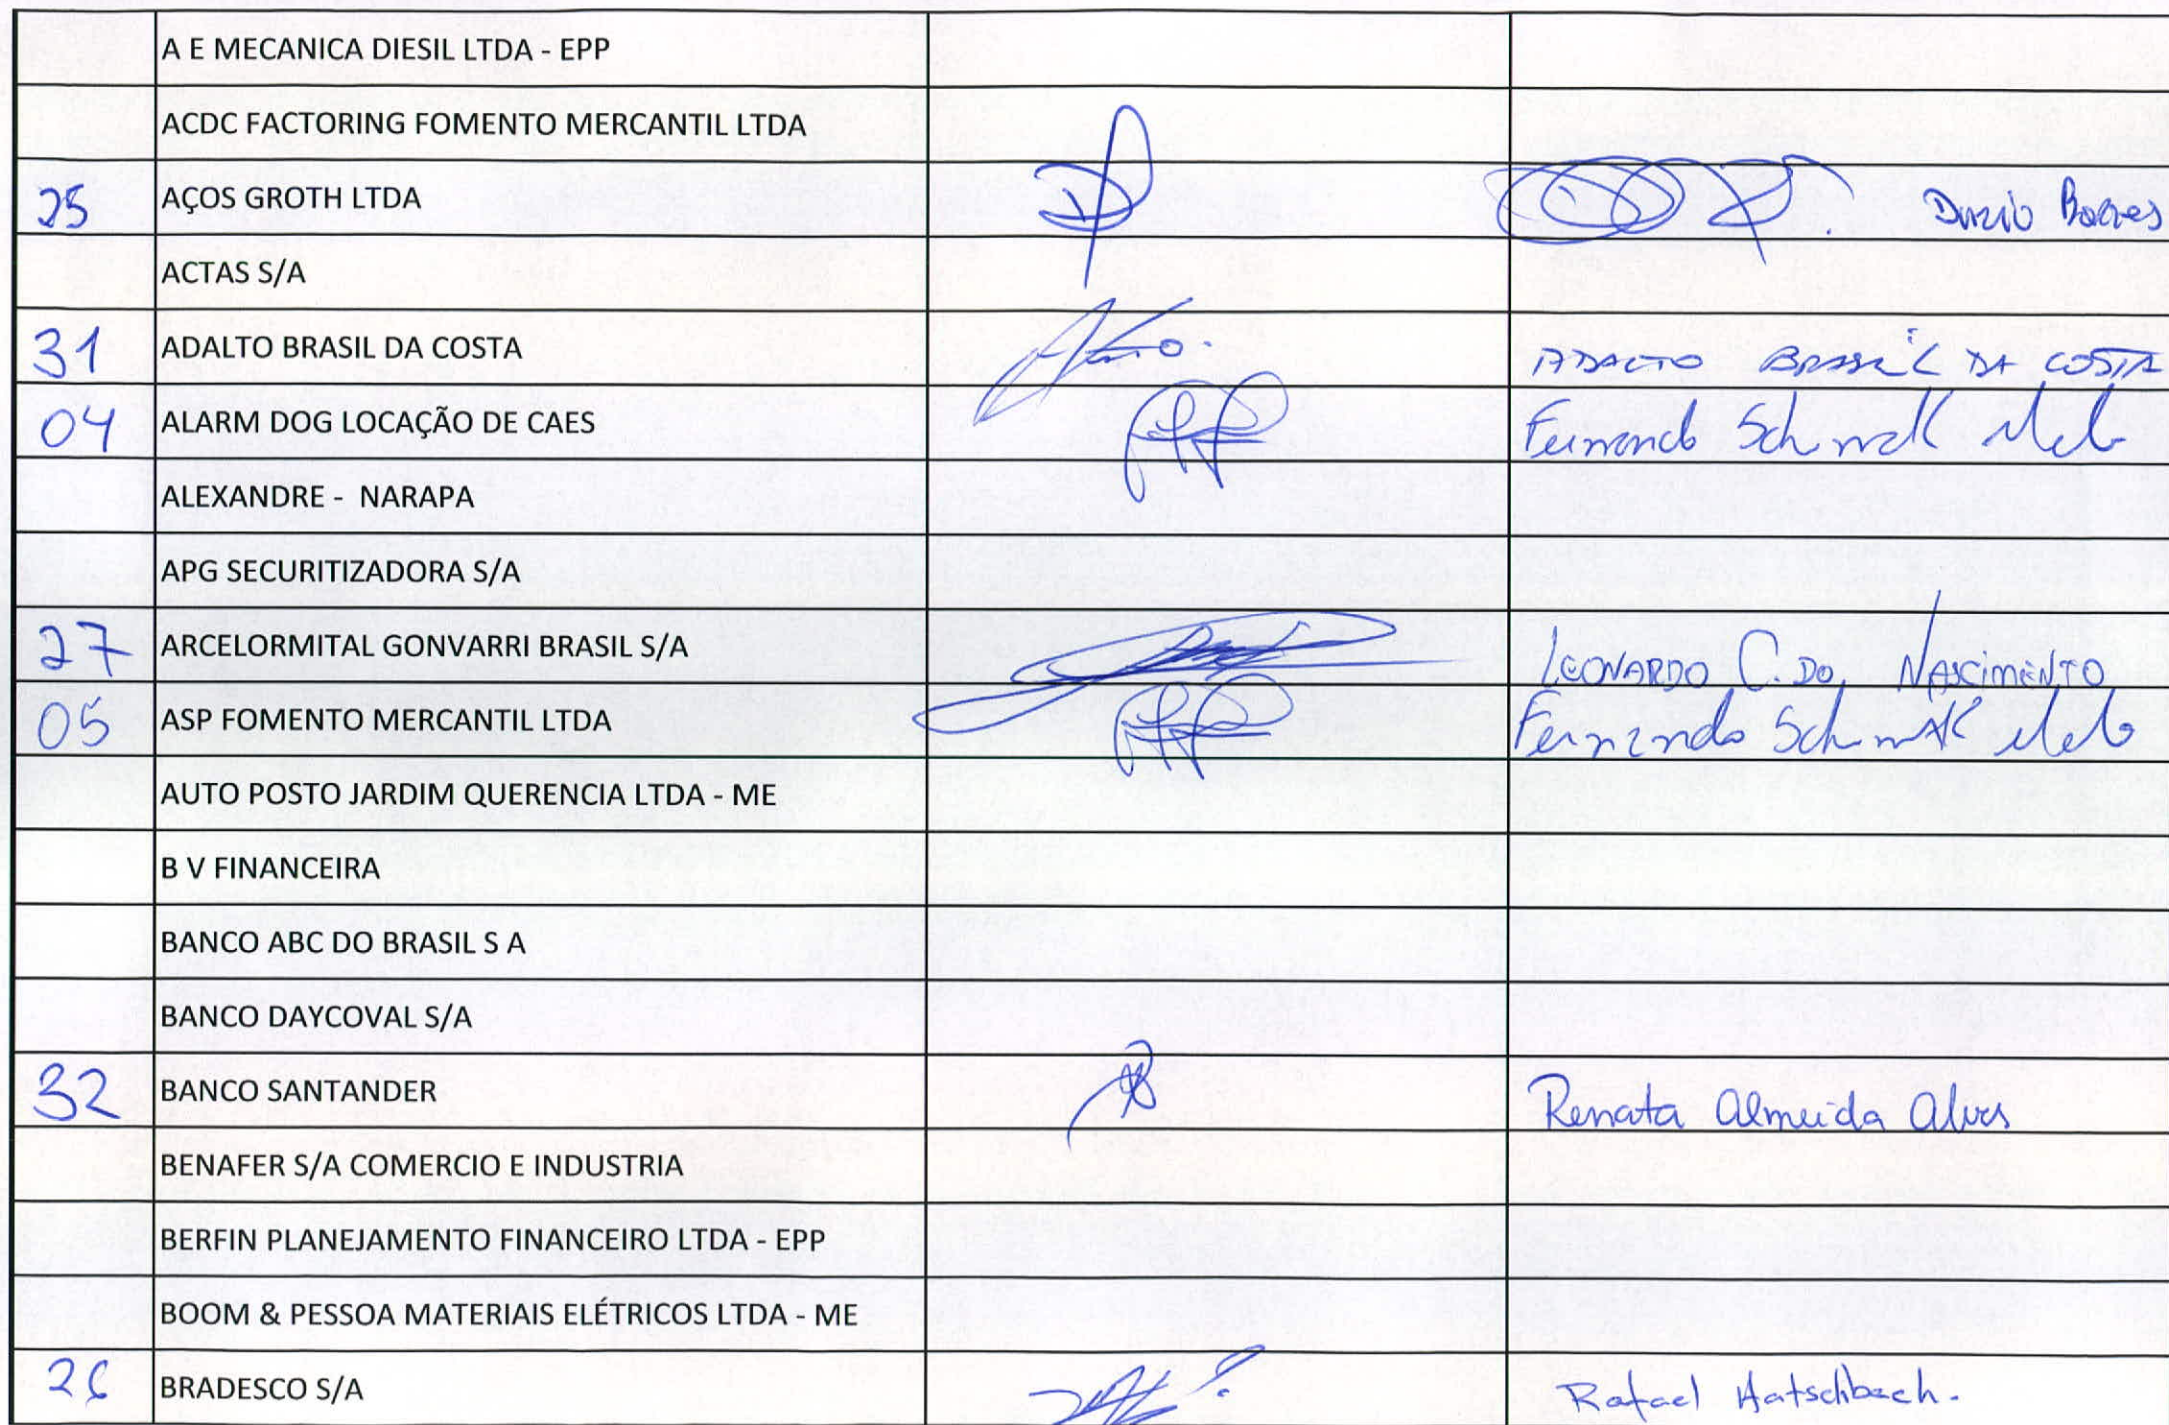 A E MECANICA DIESIL LTDA - EPP
ACDC FACTORING FOMENTO MERCANTIL LTDA
25 AÇOS GROTH LTDA
ACTAS S/A
31 ADALTO BRASIL DA COSTA ADALTO BRASIL DA COSTA
04 ALARM DOG LOCAÇÃO DE CAES Fernando
ALEXANDRE - NARAPA
APG SECURITIZADORA S/A
27 ARCELORMITAL GONVARRI BRASIL S/A LEONARDO C. DO NASCIMENTO
05 ASP FOMENTO MERCANTIL LTDA Fernando
AUTO POSTO JARDIM QUERENCIA LTDA - ME
B V FINANCEIRA
BANCO ABC DO BRASIL S A
BANCO DAYCOVAL S/A
32 BANCO SANTANDER Renata Almeida Alves
BENAFER S/A COMERCIO E INDUSTRIA
BERFIN PLANEJAMENTO FINANCEIRO LTDA - EPP
BOOM & PESSOA MATERIAIS ELÉTRICOS LTDA - ME
26 BRADESCO S/A Rafael Hatschbach.